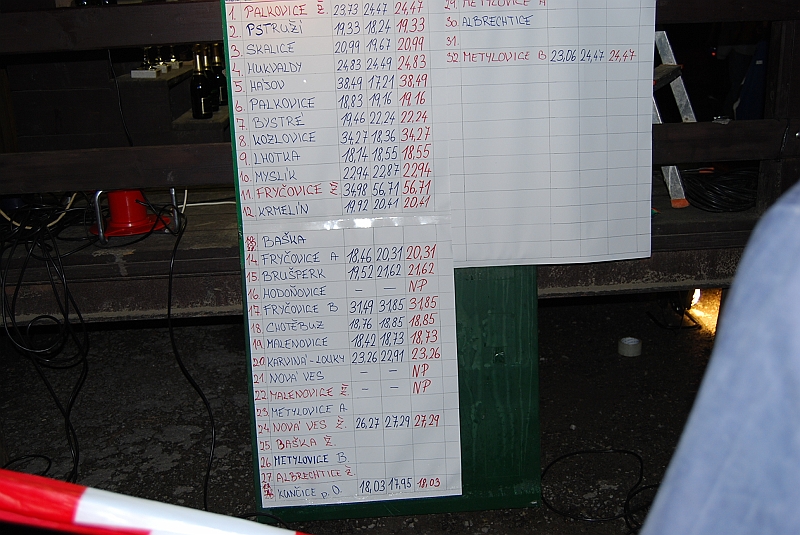 1. PALKOVICE Ž 23,73 24,47 24,47
2. PSTRUŽÍ 19,33 18,24 19,33
3. SKALICE 20,99 19,67 20,99
4. HUKVALDY 24,83 24,49 24,83
5. HÁJOV 38,49 17,21 38,49
6. PALKOVICE 18,83 19,16 19,16
7. BYSTRÉ 19,46 22,24 22,24
8. KOZLOVICE 34,27 18,36 34,27
9. LHOTKA 18,14 18,55 18,55
10. MYSLÍK 22,94 22,87 22,94
11. FRYČOVICE Ž 34,98 56,71 56,71
12. KRMELÍN 19,92 20,41 20,41
BAŠKA
14. FRYČOVICE A 18,46 20,31 20,31
15. BRUŠPERK 19,52 21,62 21,62
16. HODOŇOVICE – – NP
17. FRYČOVICE B 31,49 31,85 31,85
18. CHOTĚBUZ 18,76 18,85 18,85
19. MALENOVICE 18,42 18,73 18,73
20. KARVINÁ-LOUKY 23,26 22,91 23,26
21. NOVÁ VES – – NP
22. MALENOVICE Ž. – – NP
23. METYLOVICE A
24. NOVÁ VES Ž. 26,27 27,29 27,29
25. BAŠKA Ž.
26. METYLOVICE B.
27. ALBRECHTICE Ž.
KUNČICE p. O. 18,03 17,95 18,03
29. METYLOVICE A
30. ALBRECHTICE
31.
32. METYLOVICE B 23,06 24,47 24,47